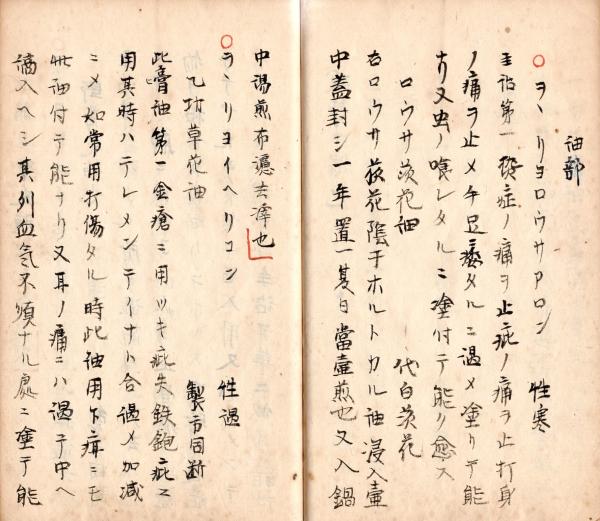 油部
○ヲヽリヨロウサアロン 性寒
主治第一發症ノ痛ヲ止疵ノ痛ヲ止打身
ノ痛ヲ止メ手足ニ痿タルニ温メ塗リテ能
ナリ又虫ノ喰レタルニ塗付テ能ク愈ス
ロウサ茨花油 代白茨花
右ロウサ茨花陰干ホルトカル油浸入壷
中蓋封シ一年置一夏日當壷煎也又入鍋
中湯煎布漉去滓也
○ヲヽリヨイヘリコン 性温
乙切草花油 製方同断
此膏油第一金瘡ニ用ツキ疵失鉄鉋疵ニ
用其時ハテレメンテイナト合温メ加減
ニメ如常用打傷タル時此油用下疳ニモ
此油付テ能ナリ又耳ノ痛ニハ温テ中ヘ
滴入ヘシ其列血氣不順ナル處ニ塗テ能